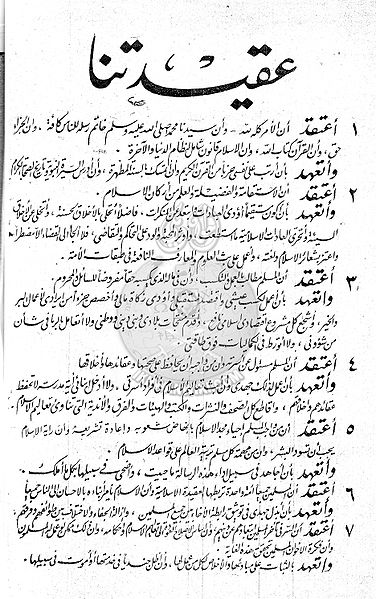 عقيدتنا
١ أعتقد أن الأمر كله لله، وأن سيدنا محمد صلى الله عليه وسلم خاتم رسله للناس كافة، وأن الجزاء
حق، وأن القرآن كتاب الله، وأن الإسلام قانون شامل لنظام الدنيا والآخرة.
وأتعهد بأن أرتب على نفسي حزبا من القرآن الكريم، وأن أتمسك بالسنة المطهرة، وأن أدرس السيرة النبوية وتاريخ الصحابة الكرام
٢ أعتقد أن الاستقامة والفضيلة والعلم من أركان الإسلام.
وأتعهد بأن أكون مستقيما أؤدي العبادات وأبتعد عن المنكرات، فاضلا أتحلى بالأخلاق الحسنة، وأتخلى عن الأخلاق
السيئة وأتحرى العادات الإسلامية ما استطعت، وأوثر المحبة والود على التحاكم والتقاضي، فلا ألجأ إلى القضاء إلا مضطرا،
وأعتز بشعائر الإسلام ولغته، وأعمل على بث العلوم والمعارف النافعة في طبقات الأمة.
٣ أعتقد أن المسلم مطالب بالعمل والتكسب، وأن في ماله الذي يكسبه حقا مفروضا للسائل والمحروم
وأتعهد بأن أعمل لكسب عيشي وأقتصد لمستقبلي وأؤدي زكاة مالي وأخصص جزءا من إيرادي لأعمال البر
والخير، وأشجع كل مشروع اقتصادي إسلامي نافع، وأقدم منتجات بلادي وبني ديني ووطني ولا أتعامل بالربا في شأن
من شؤوني، ولا أتورط في الكماليات فوق طاقتي
٤ أعتقد أن المسلم مسئول عن أسرته وأن من واجبه أن يحافظ على صحتها وعقائدها وأخلاقها
وأتعهد بأن أعمل لذلك جهدي وأن أبث تعاليم الإسلام في أفراد أسرتي، ولا أدخل أبنائي أية مدرسة لا تحفظ
عقائدهم وأخلاقهم، وأقاطع كل الصحف والنشرات والكتب والهيئات والفرق والأندية التي تناوئ تعاليم الإسلام.
٥ أعتقد أن من واجب المسلم إحياء مجد الإسلام بإنهاض شعوبه وإعادة تشريعه وأن راية الإسلام
يجب أن تسود البشر، وأن من مهمة كل مسلم تربية العالم على قواعد الإسلام.
وأتعهد بأن أجاهد في سبيل أداء هذه الرسالة ما حييت، وأضحي في سبيلها بكل ما أملك.
٦ أعتقد أن المسلمين جميعا أمة واحدة تربطها العقيدة الإسلامية وأن الإسلام يأمر أبناءه بالإحسان إلى الناس جميعا
وأتعهد بأن أبذل جهدي في توثيق رابطة الإخاء بين جميع المسلمين، وإزالة الجفاء والاختلاف بين طوائفهم وفرقهم.
٧ أعتقد أن السر في تأخر المسلمين ابتعادهم عن دينهم، وأن أساس الإصلاح العودة إلى تعاليم الإسلام وأحكامه، وأن ذلك ممكن لو عمل له المسلمون
وأن فكرة الإخوان المسلمين تحقق هذه الغاية.
وأتعهد بالثبات على مبادئها والإخلاص لكل من عمل لها، وأن أظل جنديا في خدمتها أو أموت في سبيلها.